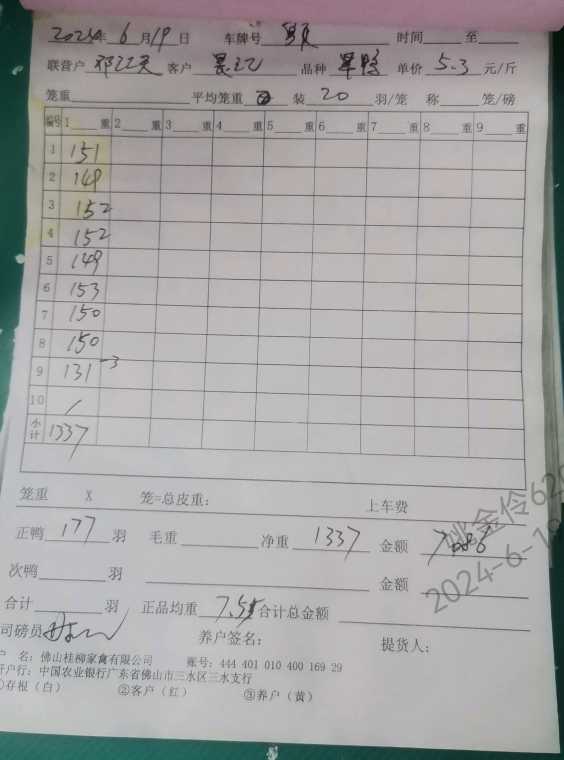 2024年 6月19日 车牌号 时间 至
联营户 邓江天 客户 品种 单价 5.3 元/斤
笼重 平均笼重 装 20 羽/笼 称 笼/磅
编号 1 重 2 重 3 重 4 重 5 重 6 重 7 重 8 重 9 重
1 151
2 149
3 152
4 152
5 149
6 153
7 150
8 150
9 131 -3
10 /
小计 1337
笼重 X 笼=总皮重: 上车费
正鸭 177 羽 毛重 净重 1337 金额
次鸭 羽 金额
合计 羽 正品均重 7.55 合计总金额
司磅员 养户签名: 提货人:
户 名: 佛山桂柳家禽有限公司 账号: 444 401 010 400 169 29
开户行: 中国农业银行广东省佛山市三水区三水支行
①存根(白) ②客户(红) ③养户(黄)
姚金伶629
2024-6-19